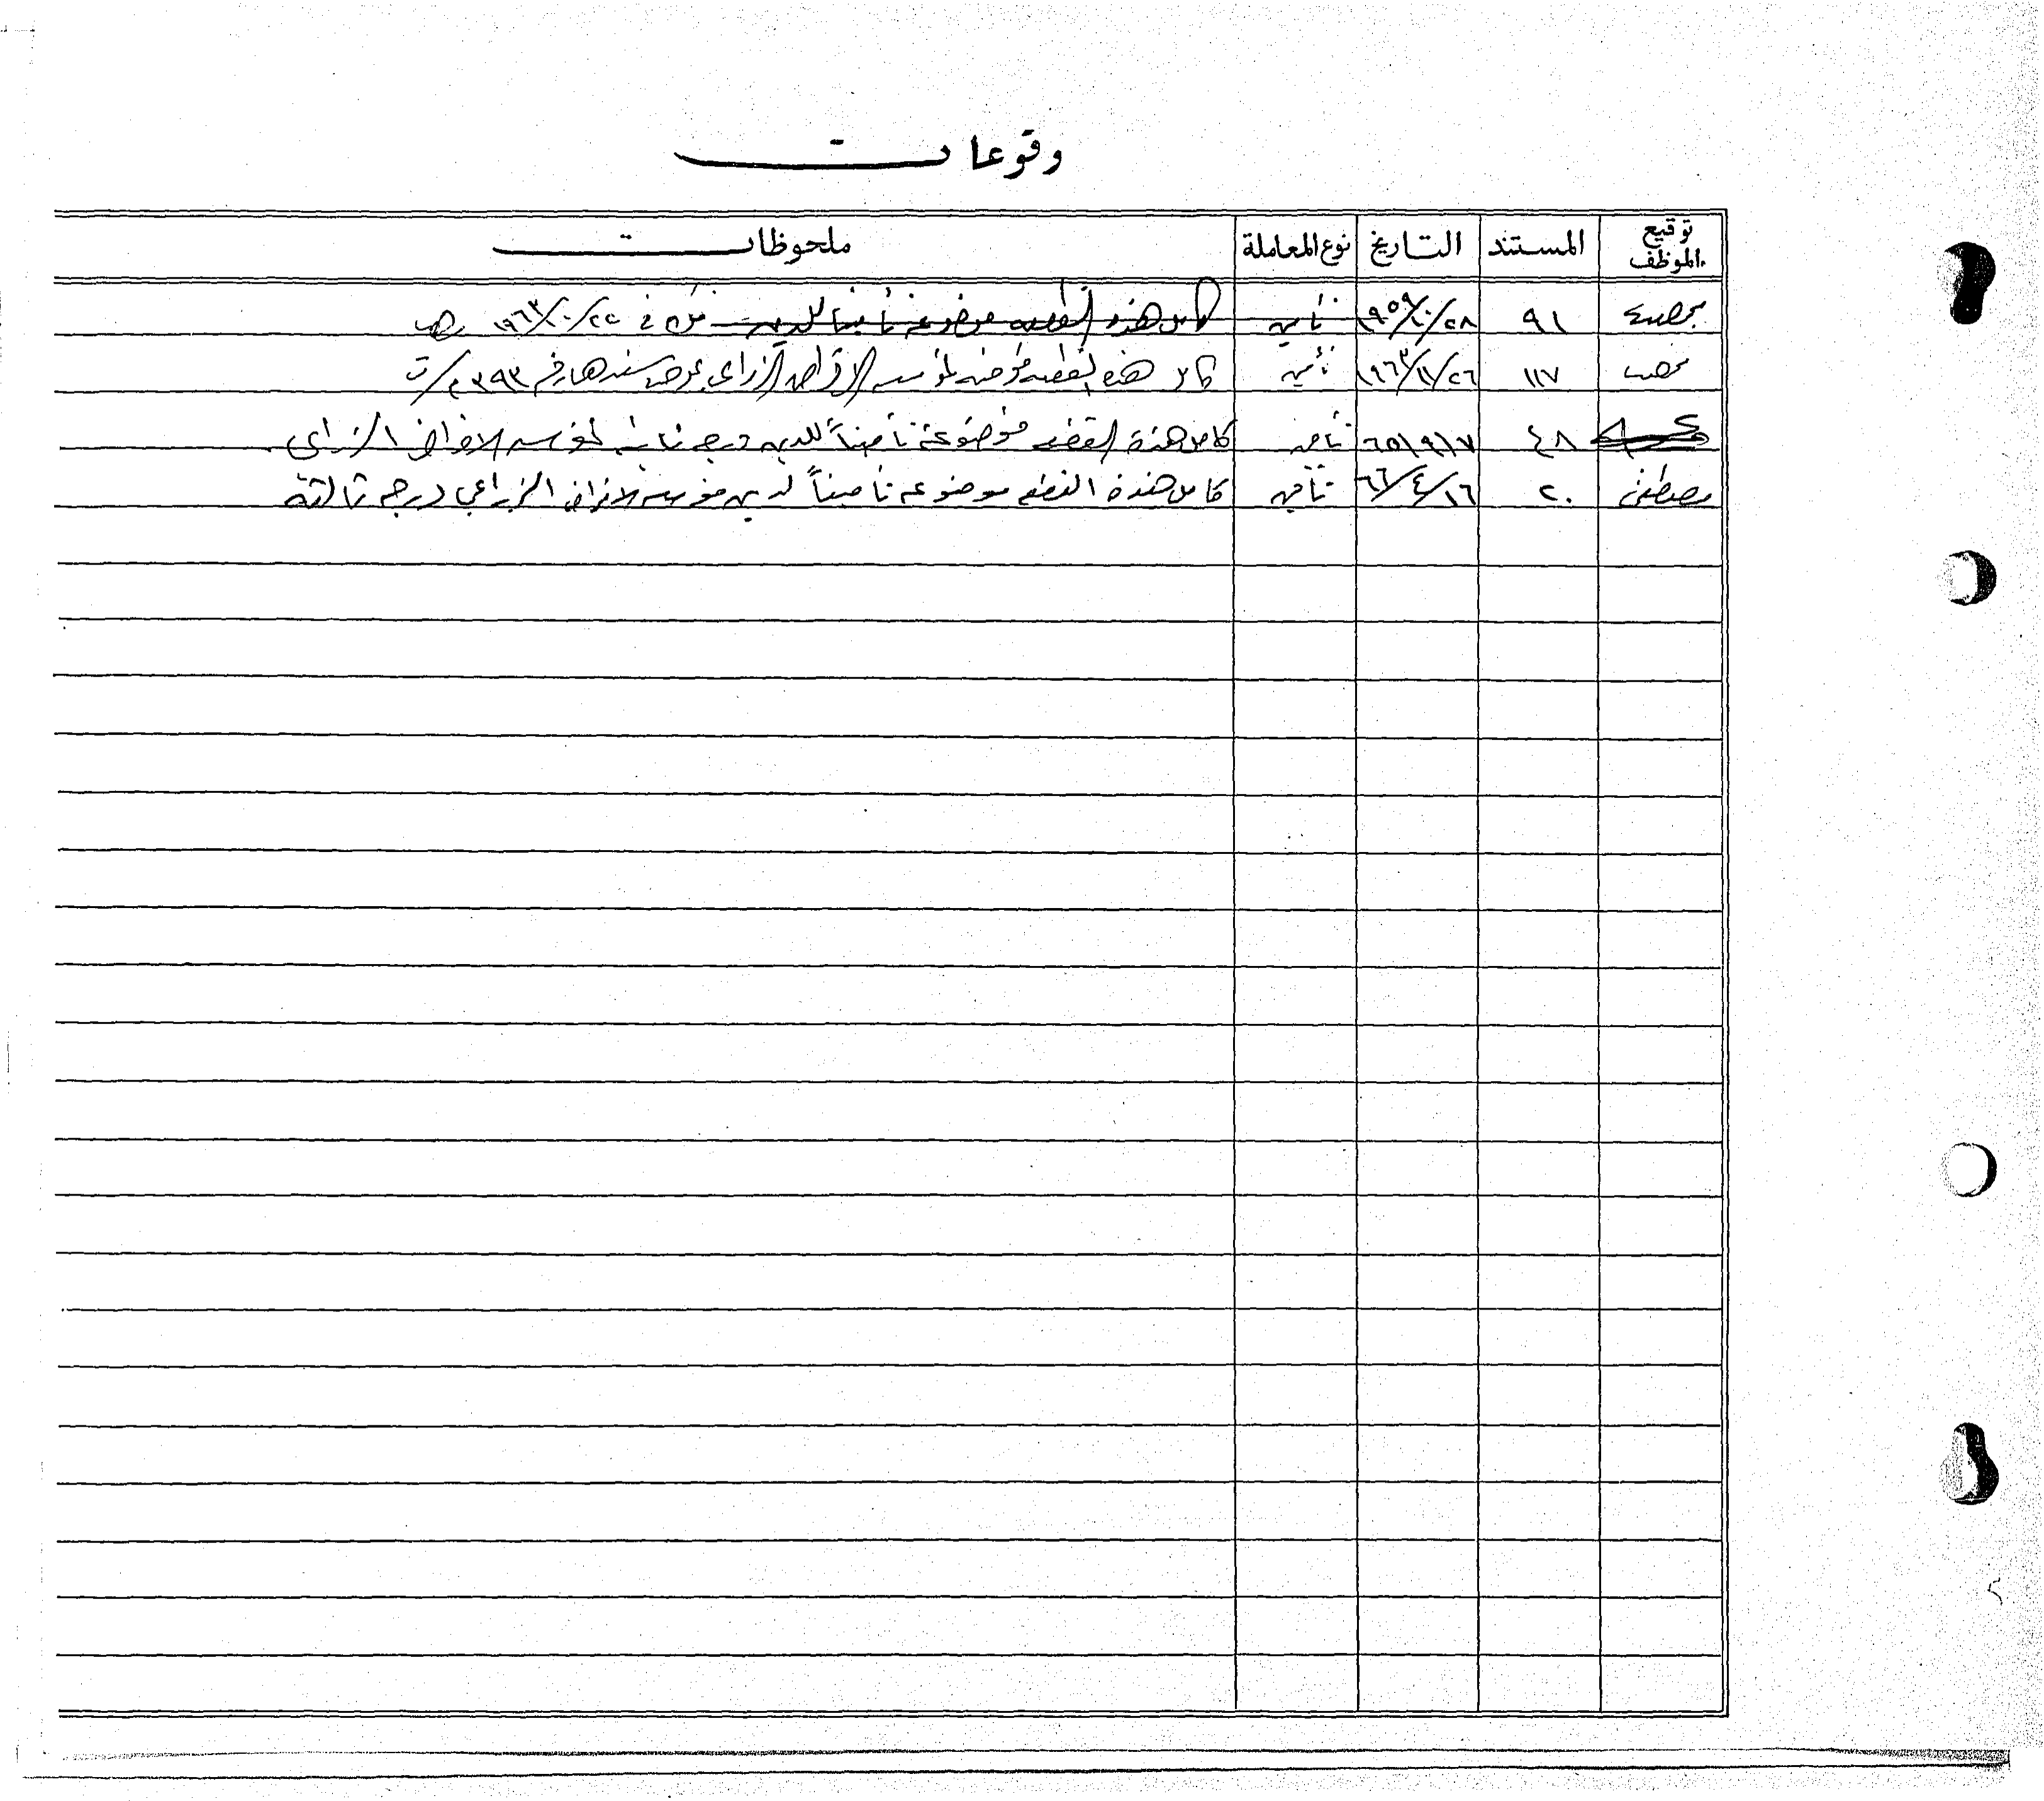 وقوعات
توقيع الموظف المستند التاريخ نوع المعاملة ملحوظات
٩١ ٢٨/١٠/٩٥٩ تأمين كامل هذه القطعه موضوعة تأمينا للدين فك في ٢٢/١٠/٩٦٣
١١٧ ٢٦/١١/٩٦٣ تأمين كامل هذه القطعه لمؤسسه الاقراض الزراعي سندها رقم
٤٨ ٦٥/٩/٧ تأمين كامل هذة القطعه موضوعة تأميناً للدين درجه ثانيه لمؤسسه الاقراض الزراعي
مصطفى ٢٠ ١٦/٤/٦٦ تأمين كامل هذة القطعه موضوعه تأميناً لدين مؤسسه الاقراض الزراعي درجه ثالثة